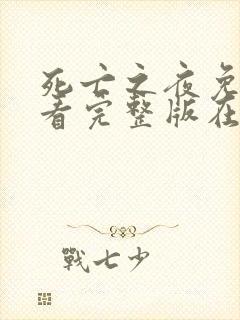 死亡之夜免
看完整版在
戰七少